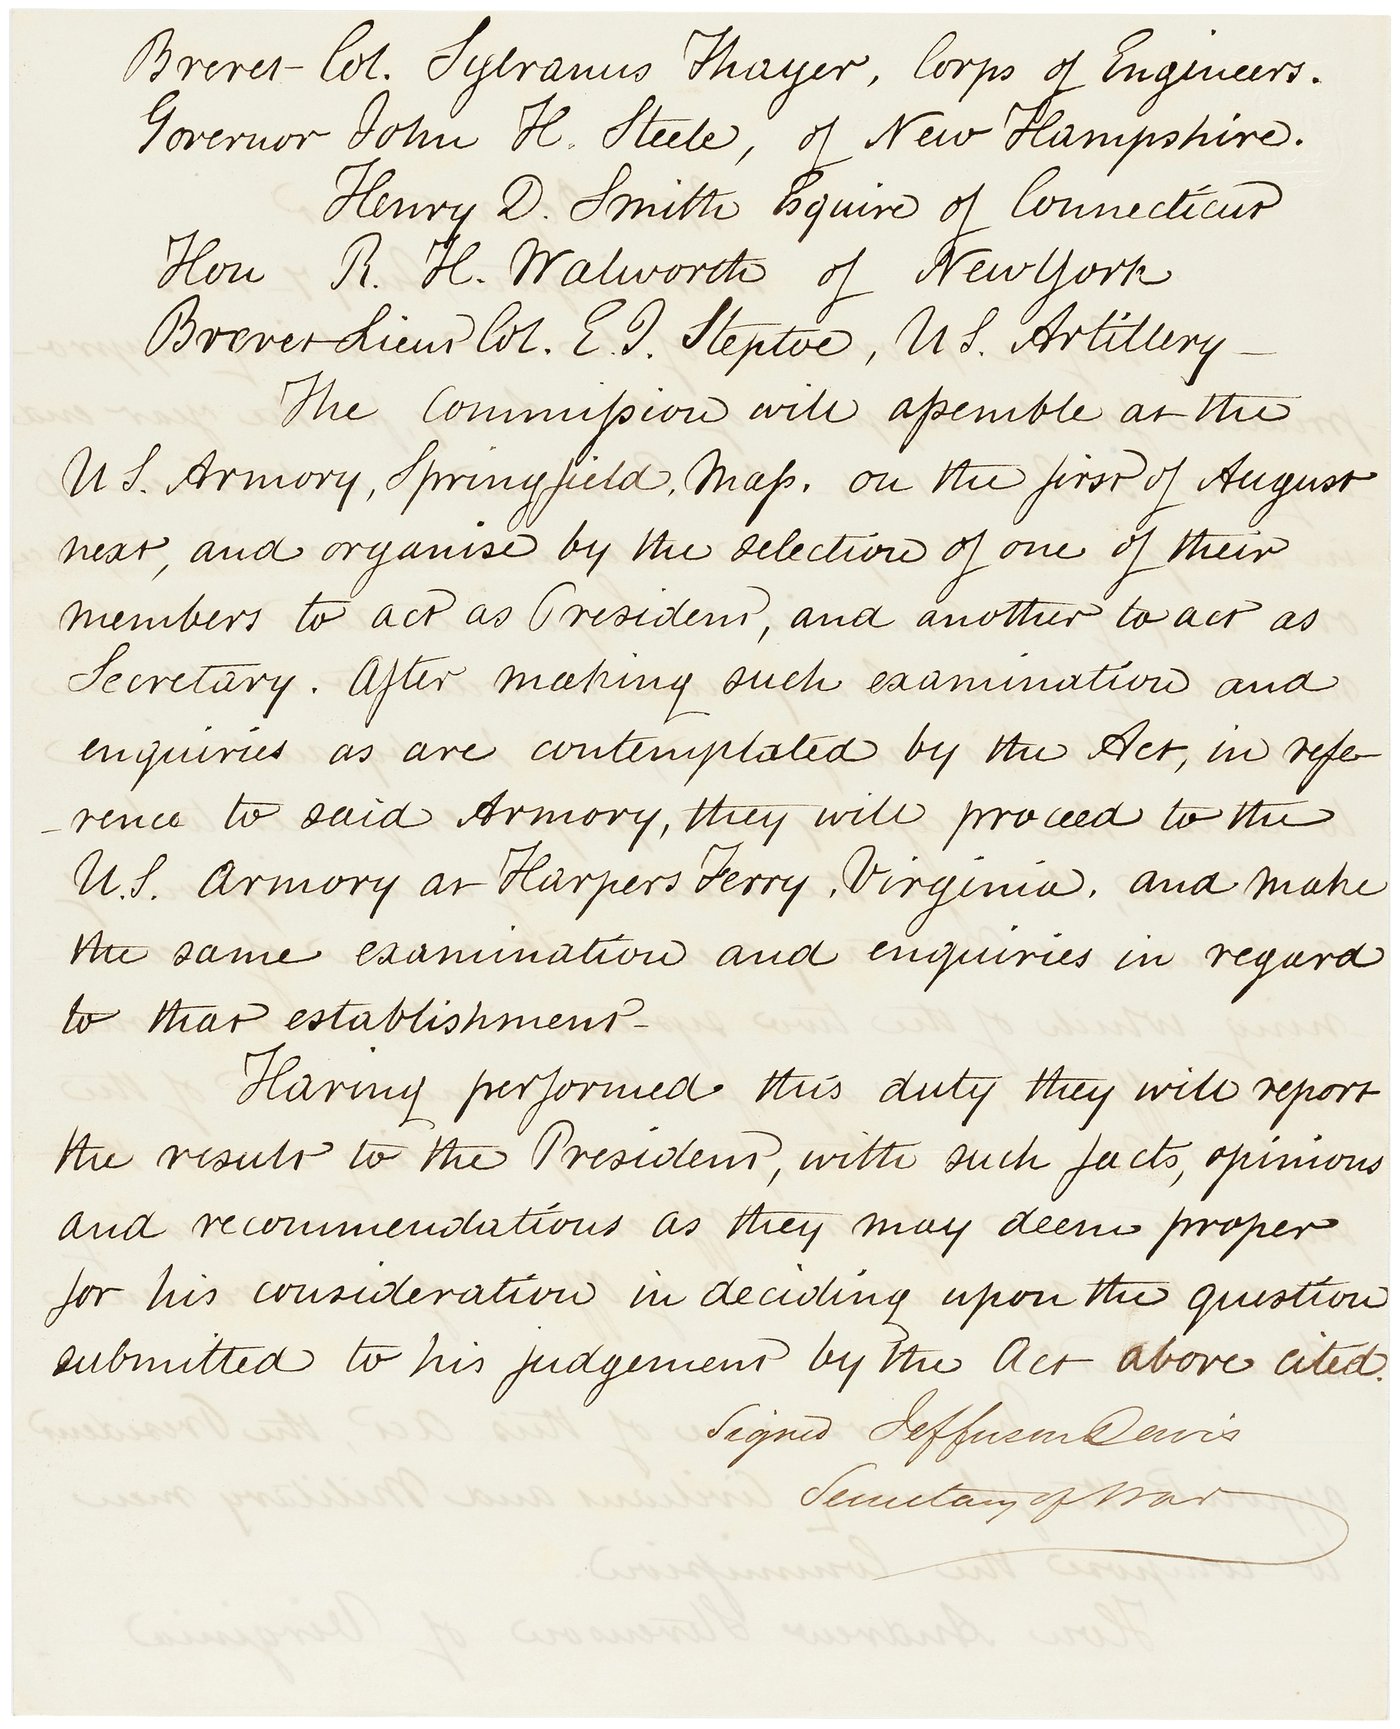 Brevet Col. Sylvanus Thayer, Corps of Engineers.
Governor John H. Steele, of New Hampshire.
Henry D. Smith Esquire of Connecticut
Hon R. H. Walworth of New York
Brevet Lieut Col. E. J. Steptoe, U S. Artillery -
The Commission will assemble at the
U S. Armory, Springfield, Mass. on the first of August
next, and organise by the selection of one of their
members to act as President, and another to act as
Secretary. After making such examination and
enquiries as are contemplated by the Act, in refe-
-rence to said Armory, they will proceed to the
U.S. Armory at Harpers Ferry, Virginia, and make
the same examination and enquiries in regard
to that establishment -
Having performed this duty they will report
the result to the President, with such facts, opinions
and recommendations as they may deem proper
for his consideration in deciding upon the question
submitted to his judgement by the Act above cited.
Signed Jefferson Davis
Secretary of War